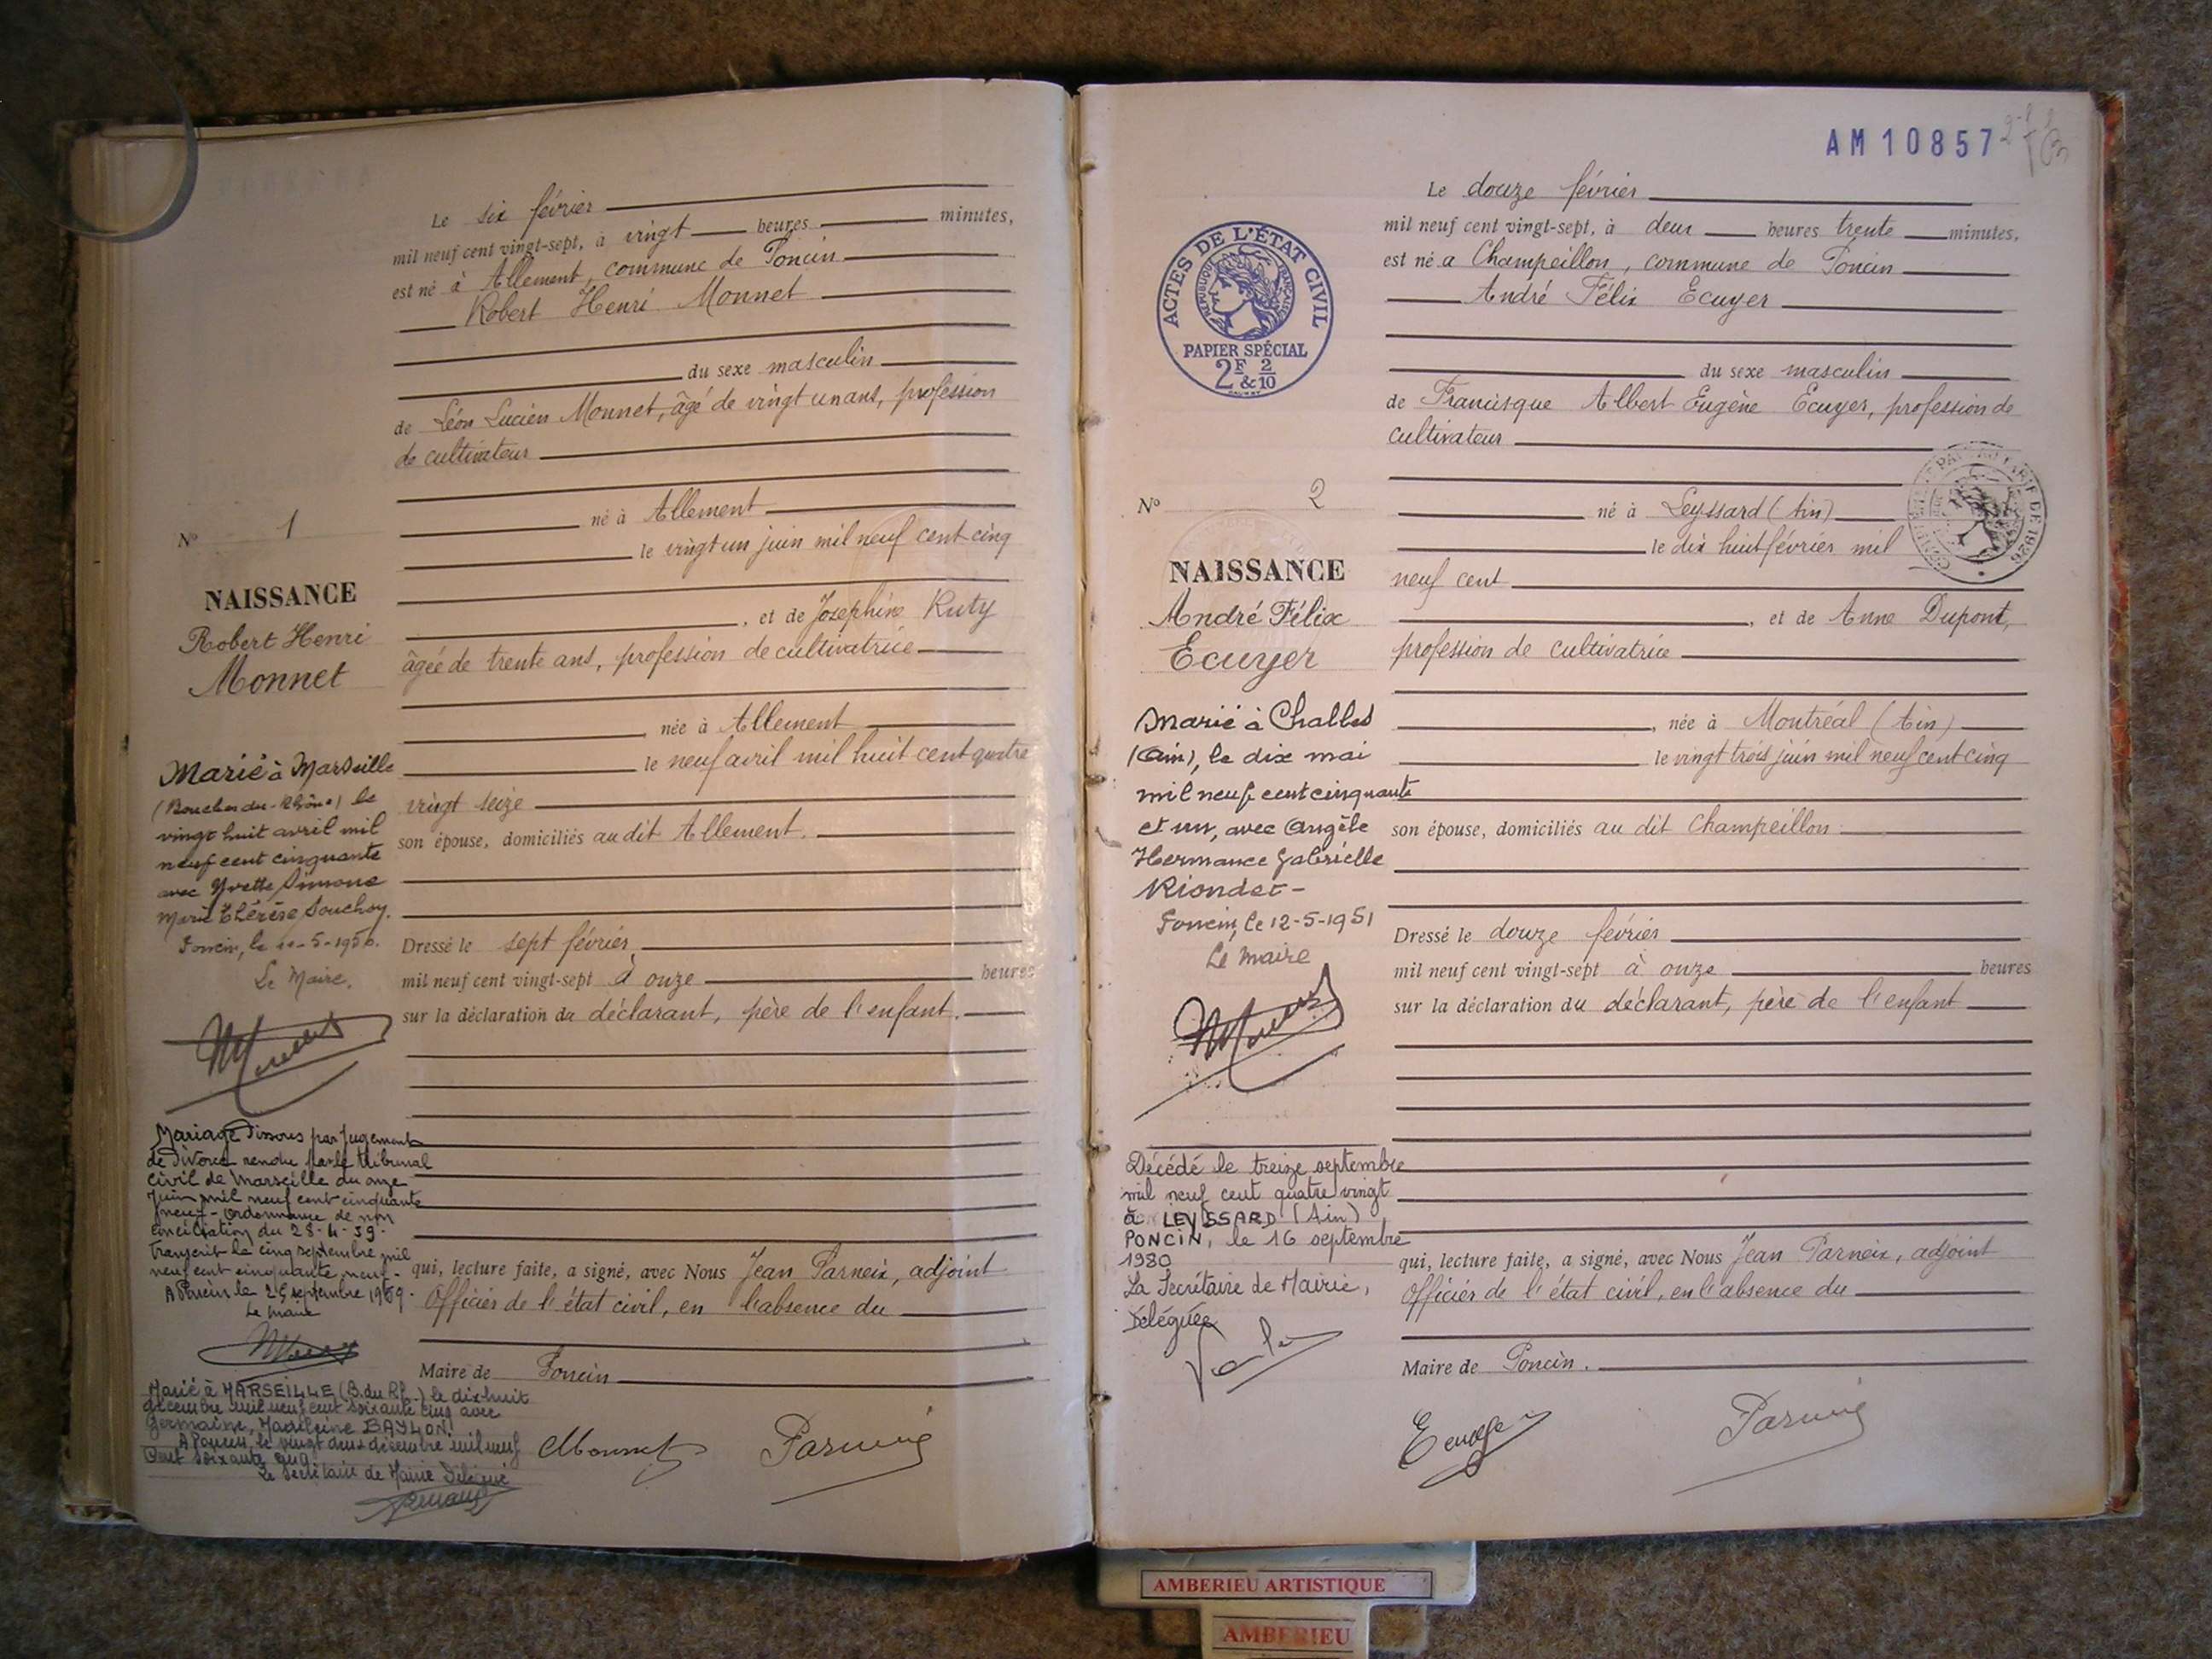 Le six février
mil neuf cent vingt-sept, à vingt heures minutes,
est né à Allement, commune de Poncin
Robert Henri Monnet
du sexe masculin
de Léon Lucien Monnet, âgé de vingt un ans, profession
de cultivateur
né à Allement
le vingt un juin mil neuf cent cinq
, et de Joséphine Ruty
âgée de trente ans, profession de cultivatrice
, née à Allement
le neuf avril mil huit cent quatre
vingt seize
son épouse, domiciliés au dit Allement.
Dressé le sept février,
mil neuf cent vingt-sept à onze heures
sur la déclaration du déclarant, père de l'enfant.
qui, lecture faite, a signé, avec Nous Jean Parneix, adjoint
Officier de l'état civil, en l'absence du
Maire de Poncin
Monnet Parneix
No 1
NAISSANCE
Robert Henri
Monnet
Marié à Marseille
(Bouches-du-Rhône) le
vingt huit avril mil
neuf cent cinquante
avec Yvette Simone
Marie Thérèse Souchoy.
Poncin, le -5-1950.
Le Maire.
Mariage dissous par jugement
de divorce rendu par le tribunal
civil de Marseille du onze
Juin mil neuf cent cinquante
neuf - Ordonnance de non
conciliation du 28-4-59.
Transcrit le cinq septembre mil
neuf cent cinquante neuf -
A Poncin le 25 septembre 1959.
Le Maire
Marié à MARSEILLE (B. du Rh.) le dix-huit
décembre mil neuf cent soixante cinq avec
Germaine, Madeleine BAYLON.
A Poncin, le vingt deux décembre mil neuf
cent soixante cinq
Le Secrétaire de Mairie Délégué
AM 10857
ACTES DE L'ÉTAT CIVIL
RÉPUBLIQUE FRANÇAISE
PAPIER SPÉCIAL
2F & 2/10
Le douze février
mil neuf cent vingt-sept, à deux heures trente minutes,
est né à Champeillon, commune de Poncin
André Félix Ecuyer
du sexe masculin
de Francisque Albert Eugène Ecuyer, profession de
cultivateur
né à Leyssard (Ain)
le dix huit février mil
neuf cent
, et de Anne Dupont,
profession de cultivatrice
, née à Montréal (Ain)
le vingt trois juin mil neuf cent cinq
son épouse, domiciliés au dit Champeillon
Dressé le douze février
mil neuf cent vingt-sept à onze heures
sur la déclaration du déclarant, père de l'enfant
qui, lecture faite, a signé, avec Nous Jean Parneix, adjoint
Officier de l'état civil, en l'absence du
Maire de Poncin.
Ecuyer Parneix
No 2
NAISSANCE
André Félix
Ecuyer
Marié à Challes
(Ain), le dix mai
mil neuf cent cinquante
et un, avec Angèle
Hermance Gabrielle
Riondet -
Poncin, le 12-5-1951
Le Maire
Décédé le treize septembre
mil neuf cent quatre vingt
à LEYSSARD (Ain)
PONCIN, le 16 septembre
1980
La Secrétaire de Mairie,
Déléguée
AMBERIEU ARTISTIQUE
AMBERIEU